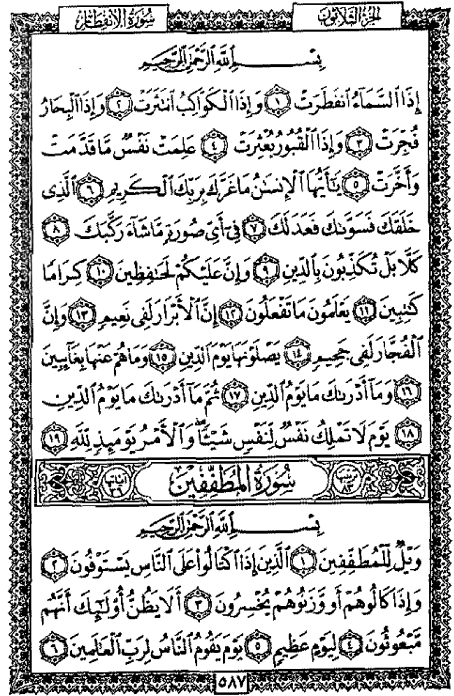 الجزء الثلاثون
سورة الانفطار
بِسْمِ اللَّهِ الرَّحْمَٰنِ الرَّحِيمِ
إِذَا السَّمَاءُ انفَطَرَتْ ١ وَإِذَا الْكَوَاكِبُ انتَثَرَتْ ٢ وَإِذَا الْبِحَارُ
فُجِّرَتْ ٣ وَإِذَا الْقُبُورُ بُعْثِرَتْ ٤ عَلِمَتْ نَفْسٌ مَّا قَدَّمَتْ
وَأَخَّرَتْ ٥ يَٰأَيُّهَا الْإِنسَٰنُ مَا غَرَّكَ بِرَبِّكَ الْكَرِيمِ ٦ الَّذِي
خَلَقَكَ فَسَوَّىٰكَ فَعَدَلَكَ ٧ فِي أَيِّ صُورَةٍ مَّا شَاءَ رَكَّبَكَ ٨
كَلَّا بَلْ تُكَذِّبُونَ بِالدِّينِ ٩ وَإِنَّ عَلَيْكُمْ لَحَٰفِظِينَ ١٠ كِرَامًا
كَٰتِبِينَ ١١ يَعْلَمُونَ مَا تَفْعَلُونَ ١٢ إِنَّ الْأَبْرَارَ لَفِي نَعِيمٍ ١٣ وَإِنَّ
الْفُجَّارَ لَفِي جَحِيمٍ ١٤ يَصْلَوْنَهَا يَوْمَ الدِّينِ ١٥ وَمَا هُمْ عَنْهَا بِغَائِبِينَ
١٦ وَمَا أَدْرَىٰكَ مَا يَوْمُ الدِّينِ ١٧ ثُمَّ مَا أَدْرَىٰكَ مَا يَوْمُ الدِّينِ
١٨ يَوْمَ لَا تَمْلِكُ نَفْسٌ لِّنَفْسٍ شَيْئًا ۖ وَالْأَمْرُ يَوْمَئِذٍ لِّلَّهِ ١٩
سُورَةُ الْمُطَفِّفِينَ
بِسْمِ اللَّهِ الرَّحْمَٰنِ الرَّحِيمِ
وَيْلٌ لِّلْمُطَفِّفِينَ ١ الَّذِينَ إِذَا اكْتَالُوا عَلَى النَّاسِ يَسْتَوْفُونَ ٢
وَإِذَا كَالُوهُمْ أَو وَّزَنُوهُمْ يُخْسِرُونَ ٣ أَلَا يَظُنُّ أُولَٰئِكَ أَنَّهُم
مَّبْعُوثُونَ ٤ لِيَوْمٍ عَظِيمٍ ٥ يَوْمَ يَقُومُ النَّاسُ لِرَبِّ الْعَٰلَمِينَ ٦
٥٨٧